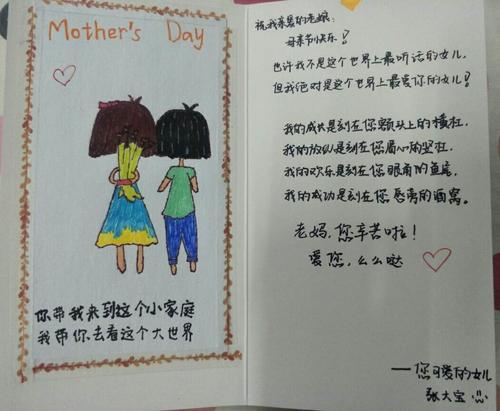 Mother's Day
你带我来到这个小家庭
我带你去看这个大世界
祝我亲爱的老娘:
母亲节快乐!
也许我不是这个世界上最听话的女儿,
但我绝对是这个世界上最爱你的女儿!
我的成长是刻在您额头上的横杠,
我的放纵是刻在您眉心的竖杠,
我的欢乐是刻在您眼角的鱼尾,
我的成功是刻在您唇旁的酒窝。
老妈,您辛苦啦!
爱您,么么哒
——您可爱的女儿
张大宝